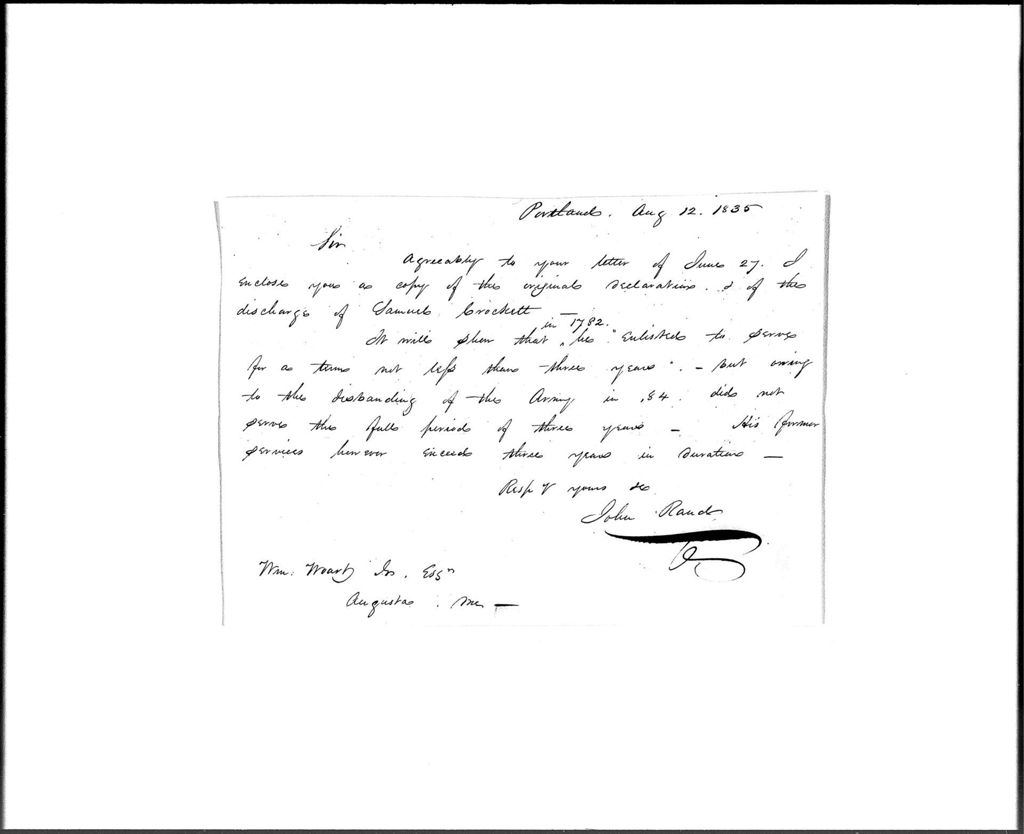 Portland. Aug 12. 1835
Sir
Agreeably to your letter of June 27. I
enclose you a copy of the original declaration. & of the
discharge of Samuel Crockett
in 1782.
It will shew that, he "Enlisted to serve
for a term not less than three years". – but owing
to the disbanding of the Army in .84. did not
serve the full period of three years – His former
services however exceeds three years in duration —
Respy yours &c
John Rand
Wm. Woart Jr. Esqr
Augusta. Me —